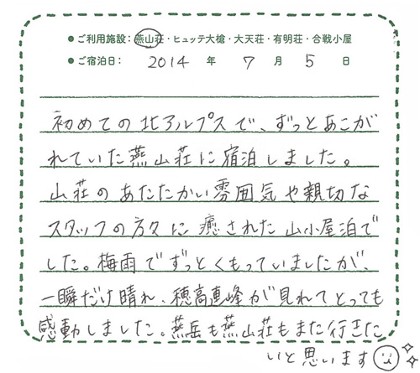 ● ご利用施設：燕山荘・ヒュッテ大槍・大天荘・有明荘・合戦小屋
● ご宿泊日： 2014 年 7 月 5 日
初めての北アルプスで、ずっとあこが
れていた燕山荘に宿泊しました。
山荘のあたたかい雰囲気や親切な
スタッフの方々に癒された山小屋泊で
した。梅雨でずっとくもっていましたが、
一瞬だけ晴れ、穂高連峰が見れてとっても
感動しました。燕岳も燕山荘もまた行きた
いと思います